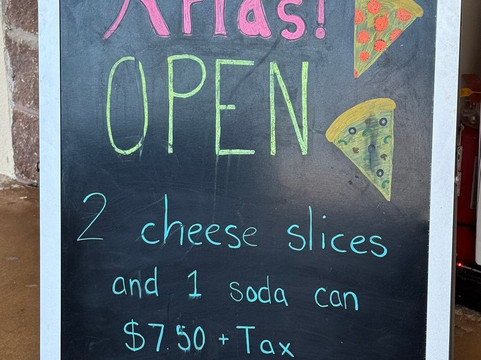 XMas!
OPEN
2 cheese slices
and 1 soda can
$7.50 + Tax